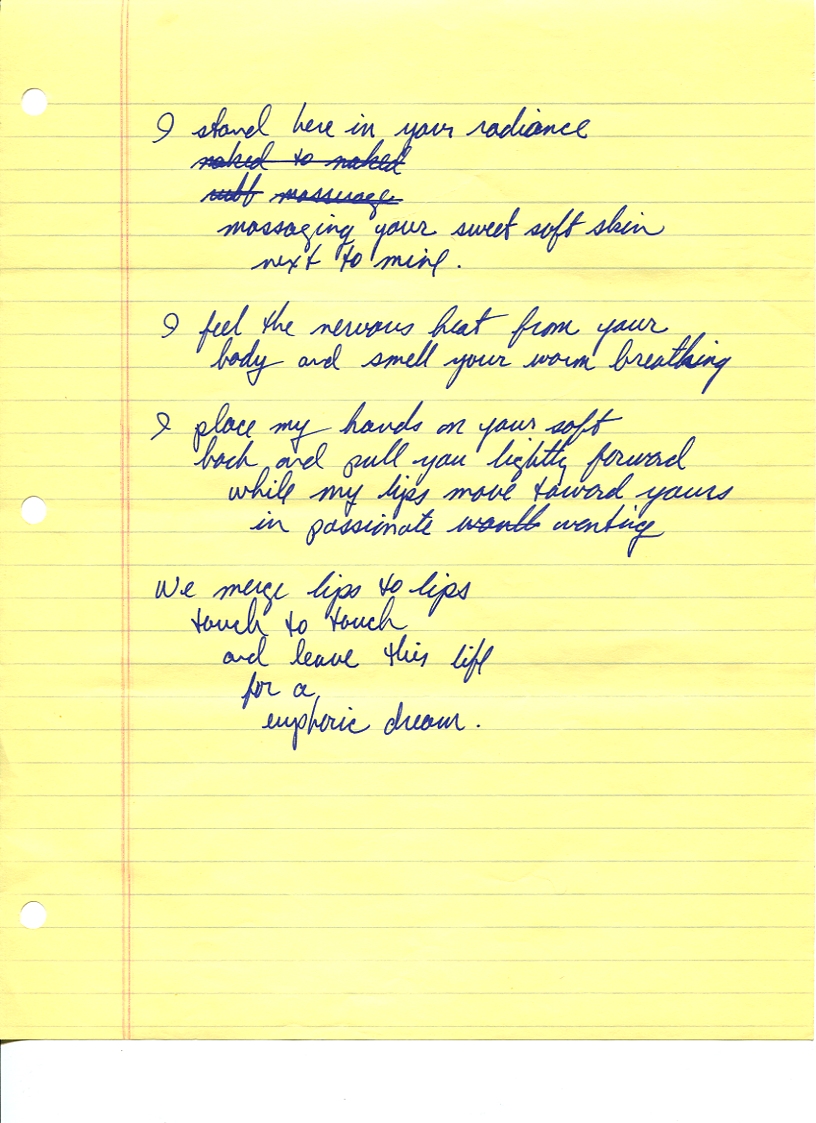 I stand here in your radiance
naked to naked
rubb massuage
massaging your sweet soft skin
next to mine.
I feel the nervous heat from your
body and smell your warm breathing
I place my hands on your soft
back and pull you lightly forward
while my lips move toward yours
in passionate wanting
We merge lips to lips
touch to touch
and leave this life
for a
euphoric dream.